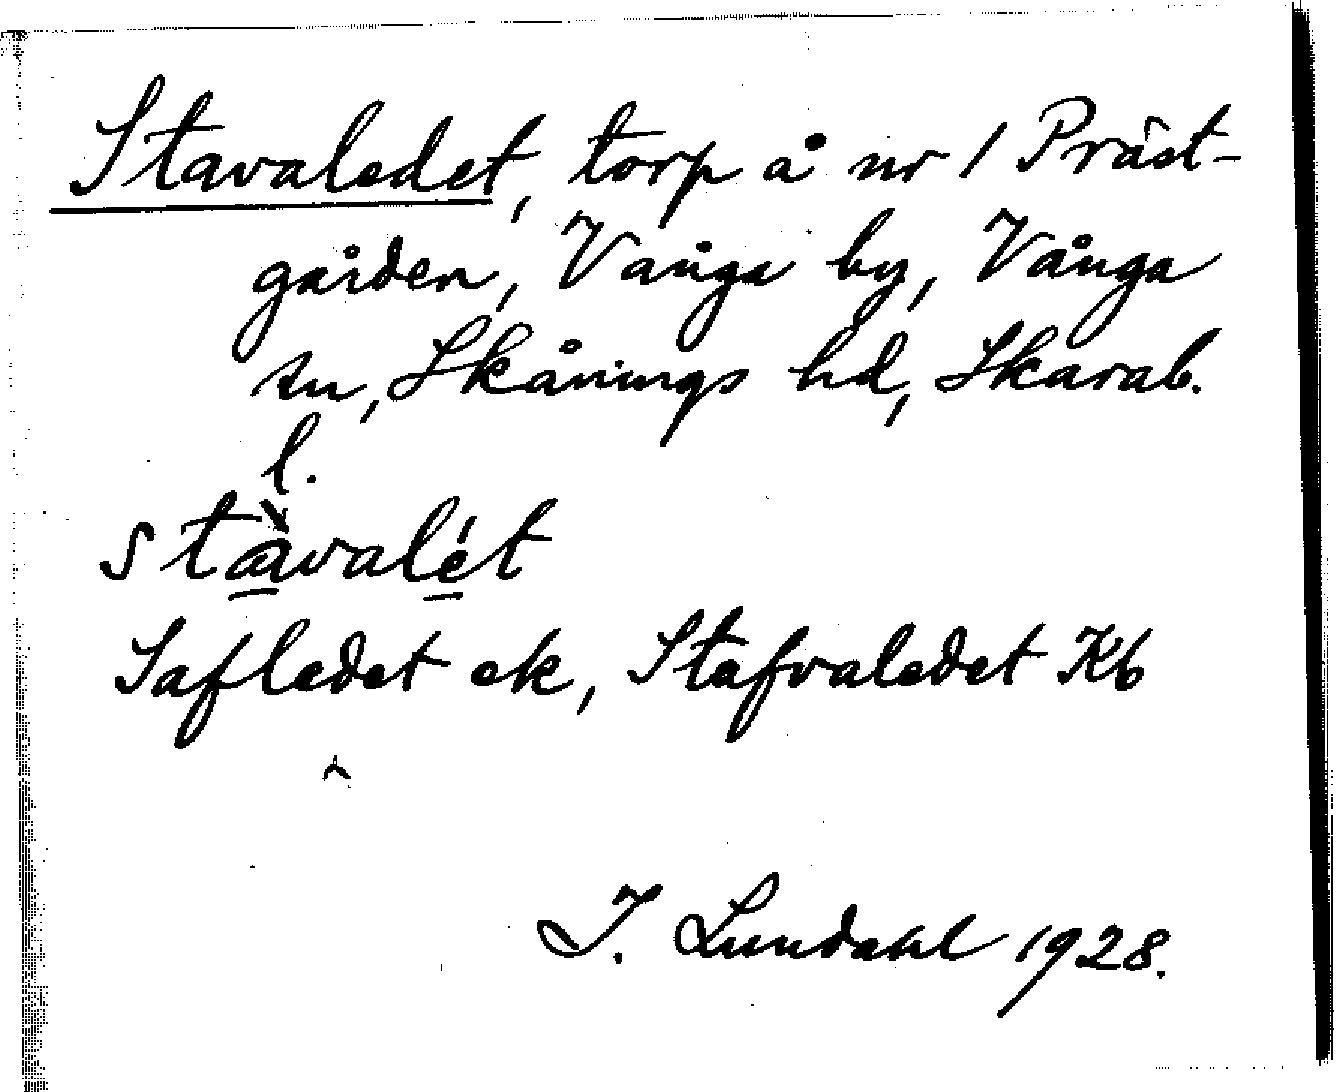 Stavaledet, torp å nr 1 Präst-
gården, Vånga by, Vånga
sn, Skånings hd, Skarab.
l.
stàvalét
Safledet ek, Stafvaledet Kb
I. Lundahl 1928.